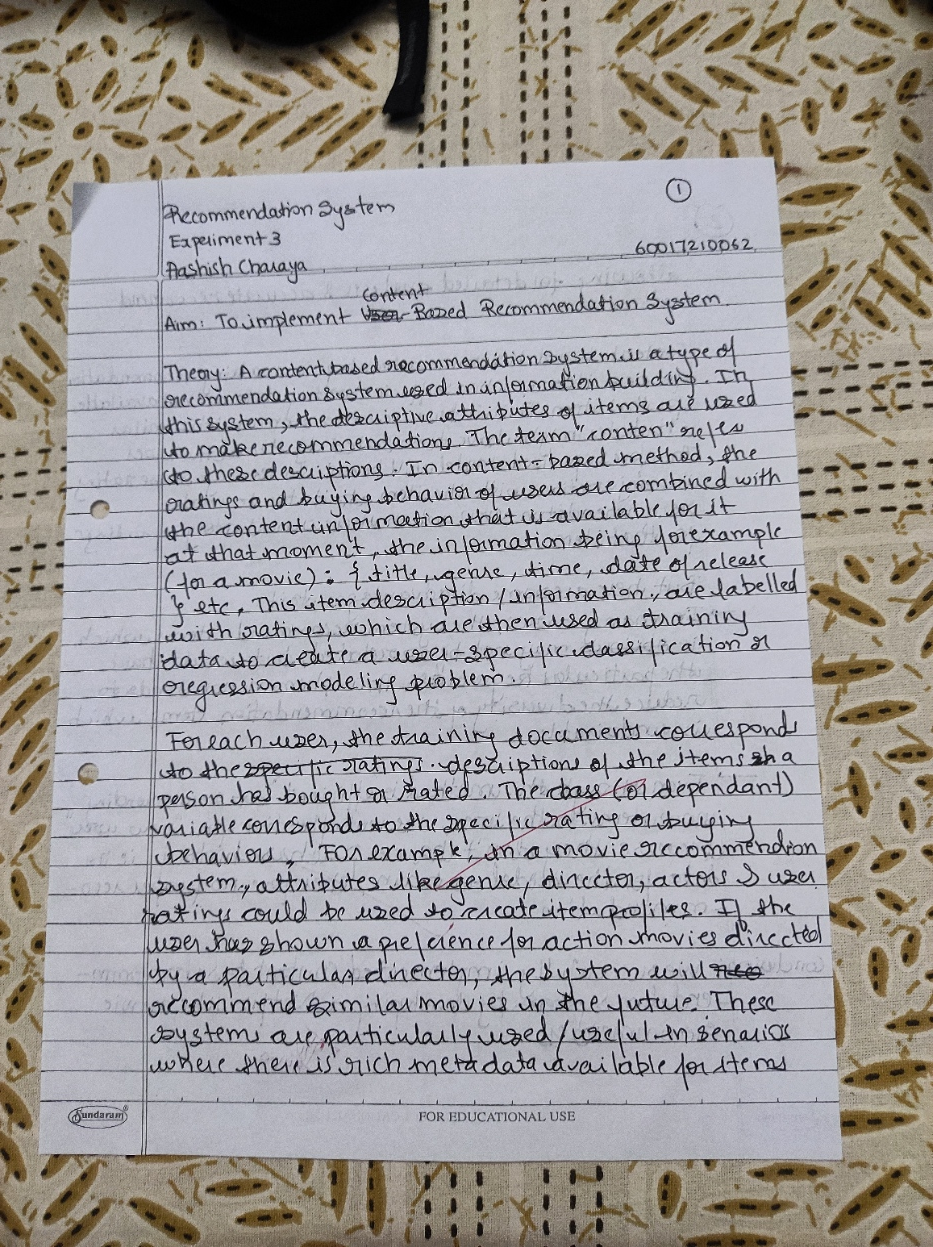 ①
Recommendation System
Experiment 3
60017210062
Aashish Charaya
Content
Aim: To implement User-Based Recommendation System.
Theory: A content based recommendation system is a type of
recommendation system used in information building. In
this system, the descriptive attributes of items are used
to make recommendations. The team "conten" refers
to these descriptions. In content-based method, the
ratings and buying behavior of users are combined with
the content information that is available for it
at that moment, the information being for example
(for a movie): { title, genre, time, date of release
} etc. This item description / information, are labelled
with ratings, which are then used as training
data to create a user-specific classification or
regression modeling problem.
For each user, the training documents correspond
to the specific ratings. descriptions of the items a
person has bought or rated. The class (or dependant)
variable corresponds to the specific rating or buying
behaviors. For example, in a movie reccommendion
system, attributes like genre, director, actors & user
ratings could be used to create item profiles. If the
user has shown a preference for action movies directed
by a particular director, the system will
recommend similar movies in the future. These
system are particularly used/useful in senarios
where there is rich metadata available for items
Sundaram®
FOR EDUCATIONAL USE